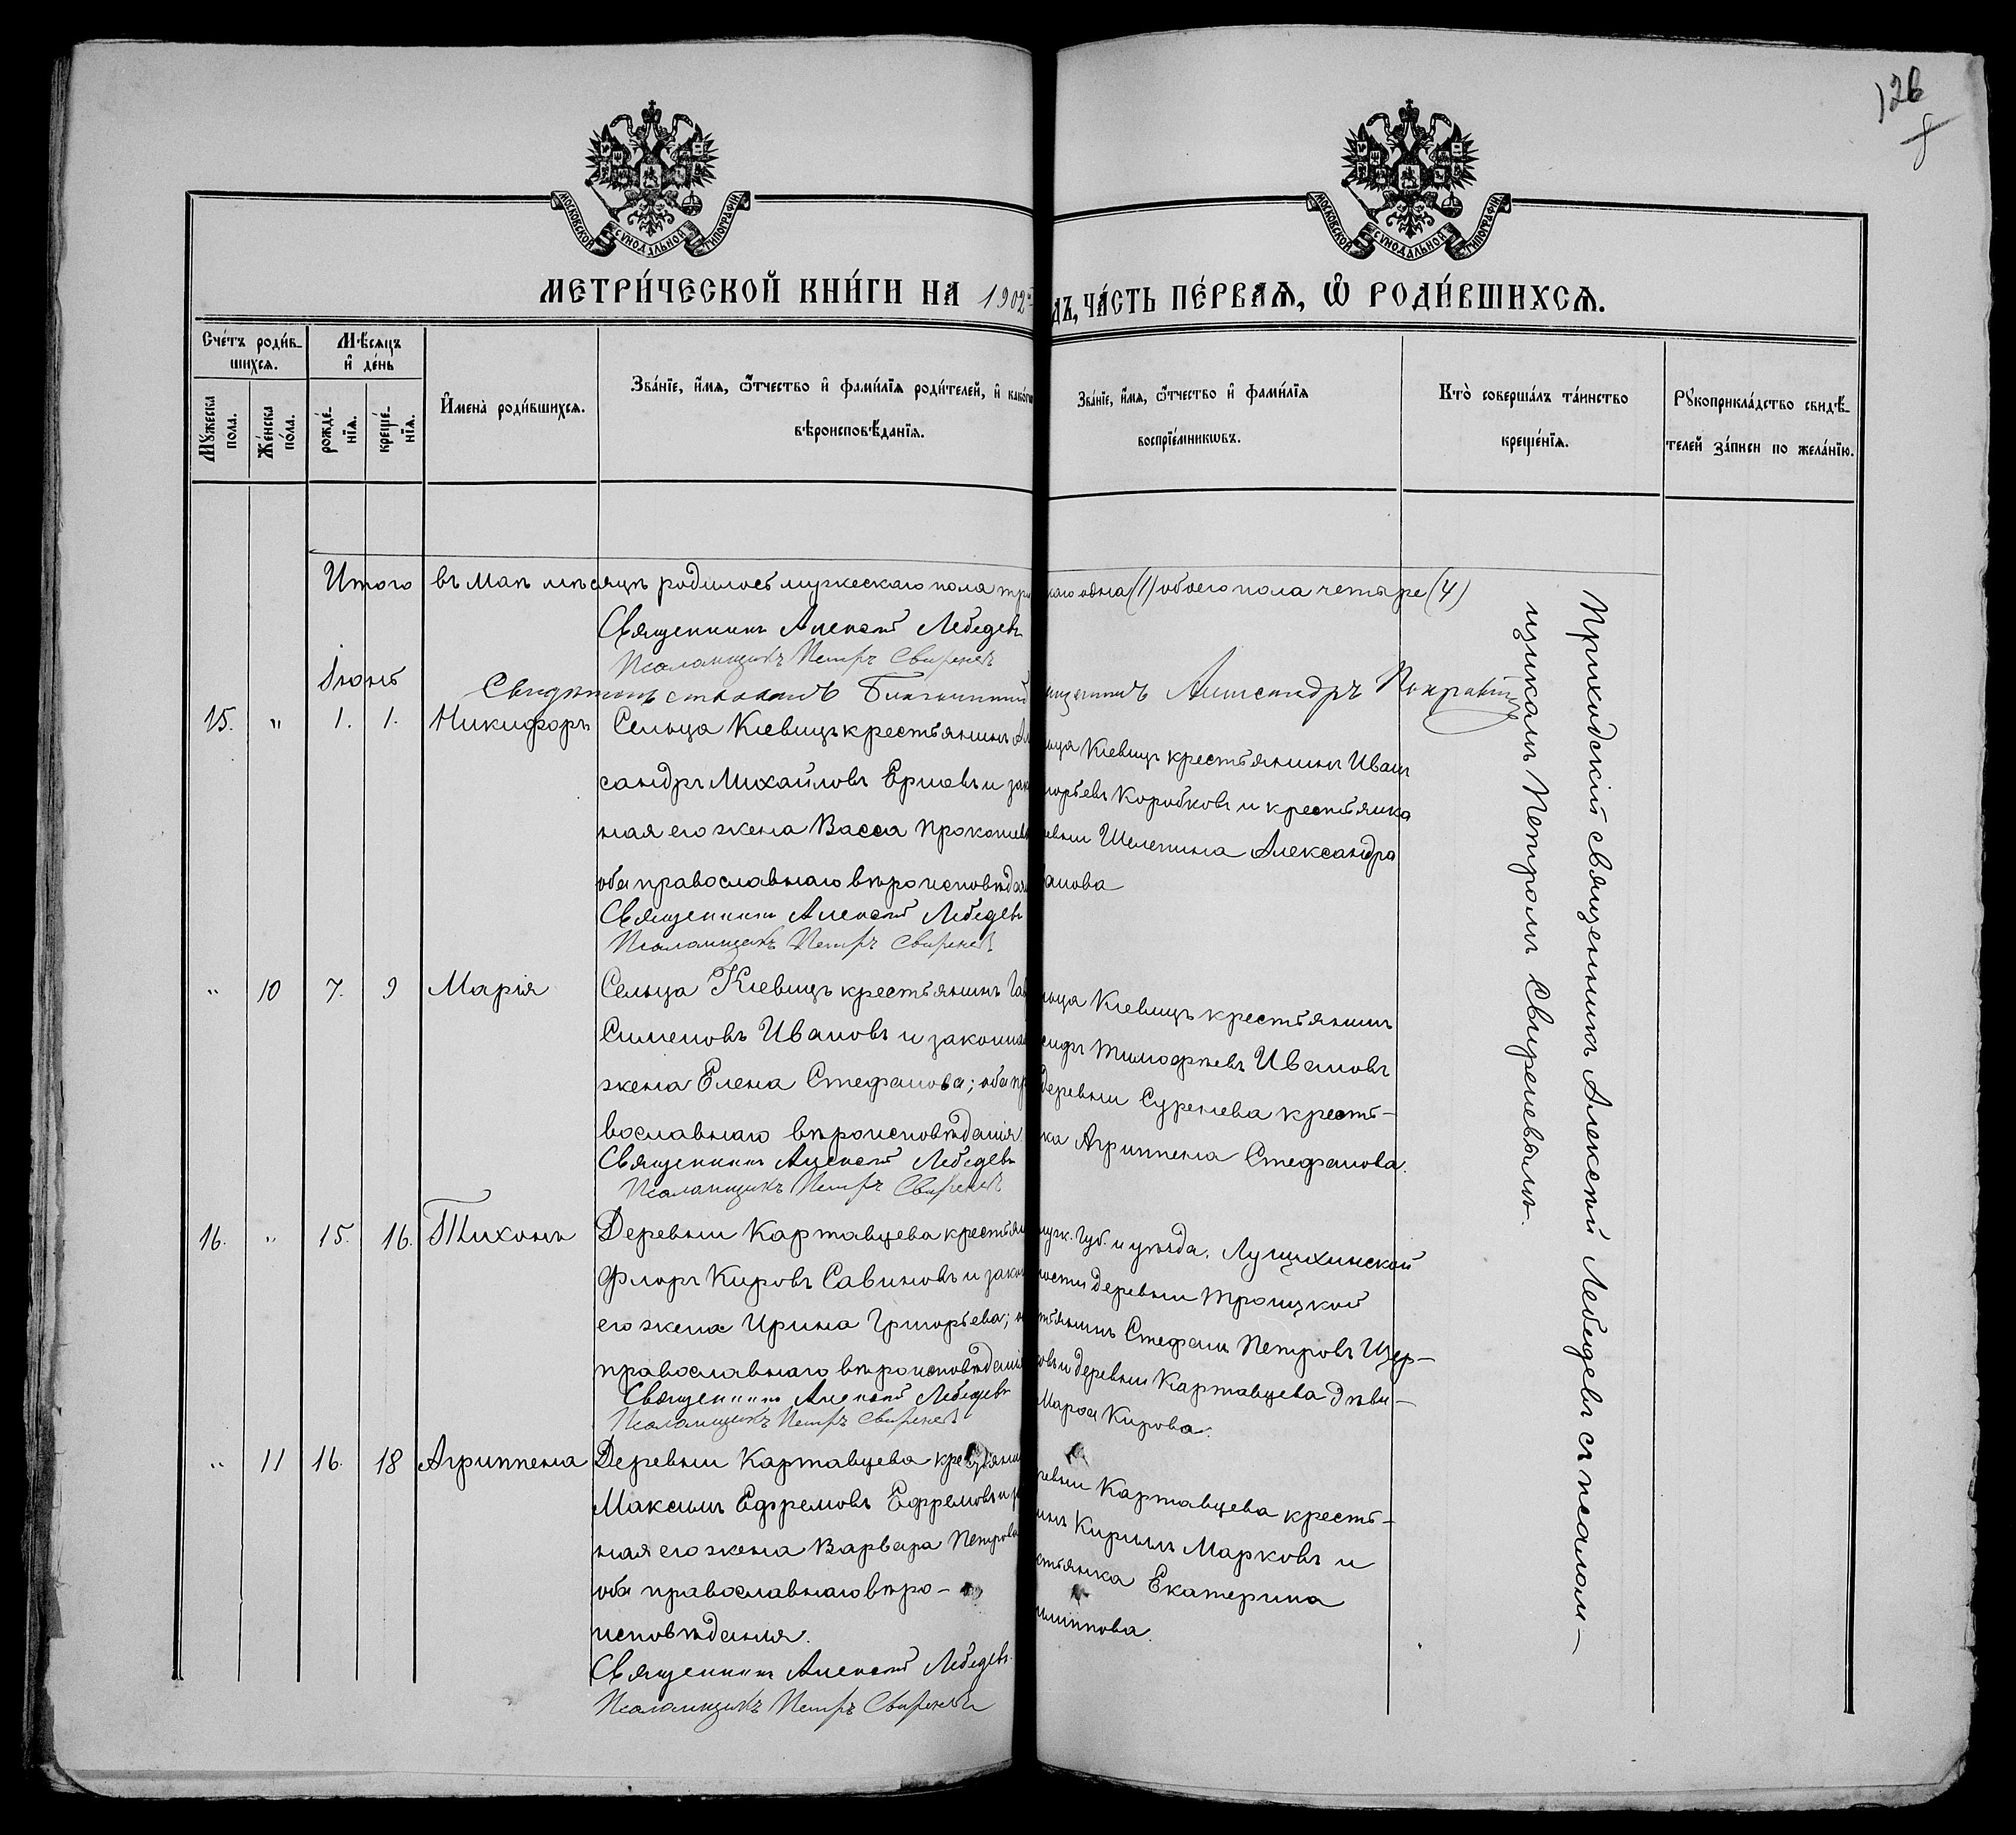 126
МОСКОВСКОЙ СѴНОДАЛЬНОЙ ТИПОГРАФІИ
МОСКОВСКОЙ СѴНОДАЛЬНОЙ ТИПОГРАФІИ
МЕТРИ́ЧЕСКОЙ КНИ́ГИ НА 1902
ДЪ, ЧА́СТЬ ПЕ́РВАѦ, Ѡ҆ РОДИ́ВШИХСѦ.
Сче́тъ роди́в-
шихсѧ.
Мꙋ́жеска
пола.
Же́нска
по́ла.
Мѣ́сѧцъ
и҆ де́нь
рожде́-
нїѧ.
креще́-
нїѧ.
И҆мена̀ роди́вшихсѧ.
Зва́нїе, и҆́мѧ, ѻ҆́тчество и҆ фами́лїѧ роди́телей, и҆ како́гѡ
вѣроисповѣ́данїѧ.
Зва́нїе, и҆́мѧ, ѻ҆́тчество и҆ фами́лїѧ
воспрїе́мникѡвъ.
Кто̀ соверша́лъ та́инство
креще́нїѧ.
Рꙋкоприкла́дство свидѣ́-
телей за́писи по жела́нїю.
Итого въ Маѣ мѣсяцѣ родилось мужескаго пола три
каго одна (1) обоего пола четыре (4)
Священникъ Алексѣй Лебедевъ
Псаломщикъ Петръ Свиревъ
Іюнь
Александръ
15. " 1. 1. Никифоръ
Сельца Кіевицъ крестьянинъ Ал
сандръ Михайловъ Ершевъ и зак
ная его жена Васса Прокопіев
оба православнаго вѣроисповѣдан
Священникъ Алексѣй Лебедевъ
Псаломщикъ Петръ Свиревъ
ьца Кіевицъ крестьянинъ Иванъ
горьевъ Коробковъ и крестьянка
евни Шелепина Александра
анова
" 10 7. 9 Марія
Сельца Кіевицъ крестьянинъ Гав
Сименовъ Ивановъ и законная
жена Елена Стефанова; оба пр
вославнаго вѣроисповѣданія.
Священникъ Алексѣй Лебедевъ
Псаломщикъ Петръ Свиревъ
ьца Кіевицъ крестьянинъ
сифъ Тимофѣевъ Ивановъ
деревни Суренева кресть-
ка Агриппена Стефанова.
16. " 15. 16. Тихонъ
Деревни Картавцева крестьян
Флоръ Кировъ Савиновъ и закон
его жена Ирина Григорьева; о
православнаго вѣроисповѣданія
Священникъ Алексѣй Лебедевъ
Псаломщикъ Петръ Свиревъ
луж. Губ. и уѣзда, Лущихинской
лости деревни Троицкой
тьянинъ Стефанъ Петровъ Щер-
овъ и деревни Картавцева дѣви-
Марѳа Кирова.
" 11 16. 18 Агриппена
Деревни Картавцева крестьянин
Максимъ Ефремовъ Ефремовъ и за
ная его жена Варвара Петрова
оба православнаго вѣро-
исповѣданія.
Священникъ Алексѣй Лебедевъ
Псаломщикъ Петръ Свиревъ
ревни Картавцева кресть-
инъ Кириллъ Марковъ и
стьянка Екатерина
илиппова.
Приходскій священникъ Алексѣй Лебедевъ съ псалом-
щикомъ Петромъ Свиревымъ.